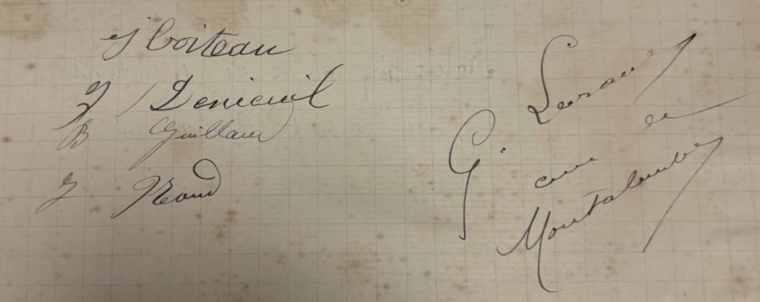 J Boiteau
J Denieuil
B Guillaud
J Réaud
G.
curé de
Montalembert